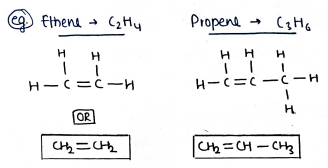 eg. Ethene → C2H4
Propene → C3H6
H H
H — C = C — H
OR
CH2=CH2
H H H
H — C = C — C — H
H
CH2=CH—CH3